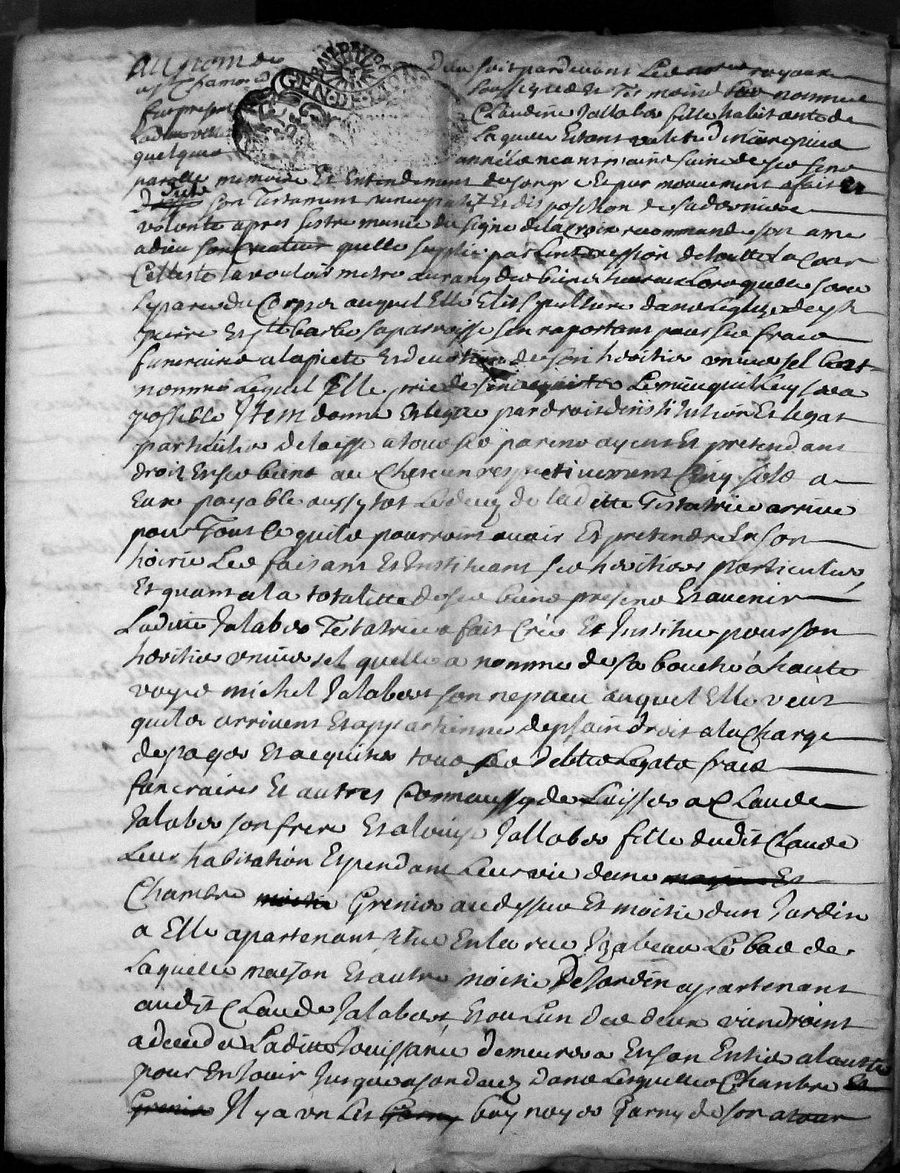 Au nom de Dieu soit pardevant Les no.res royaux
a S.t Chamond soussignes et tesmoins bas nommes
fut presente Claudine Jallabes fille habitante de
Ladite ville Laquelle Estant
quelque neantmoins saine de ses sens
parolle memoire Et Entendement de son gre Et pur mouvement a fait Et
dicte son Testament nuncupatif Et disposition de sa derniere
volonte apres sestre munie du signe de la croix recommande son ame
a dieu son Createur quelle supplie par Lintercession de toutte La Cour
Celleste la vouloir mettre au rang des bienheureux Lors quelle sera
separee du Corps auquel Elle Elit sepulture dans Leglise de S.t
pierre Et S.te barbe sa parroisse sen raportant pour ses frais
funeraires a la piete Et devotion de son heritier universel bas
nomme Lequel Elle prie de sen aquitter Le mieux quil Luy sera
possible Item donne Et legue par droit dinstitution Et legat
particulier delaisse a tous ses parens ayans Et pretendans
droit En ses biens au Chacun respectivement Cinq sols a
Eux payable aussytot Le deces de laditte Testatrice arrive
pour Tout Ce quils pourroint avoir Et pretendre En son
hoirie Les faisant Et Instituant ses heritiers particuliers
Et quant a la totallitte de ses biens presens Et avenir
Laditte Jalabes Testatrice a fait Cree Et Institue pour son
heritier universel quelle a nomme de sa bouche a haute
voye michel Jalabes son nepveu auquel Elle veut
quils arrivent Et appartienne de plain droit a la Charge
de payer Et acquiter tous ses debtes Legats frais
funeraires Et autres Comm' aussy de Laisser a Claude
Jalabes son frere Et a Louise Jallabes fille dudit Claude
Leur habitation Et pendant Leur vie dans Et
Chambre Grenier au dessus Et moitie dun Jardin
a Elle apartenant situe En la rue Izabeau Le bas de
Laquelle maison Et autre moitie de Jardin apartenant
audit Claude Jalabes Et ou Lun des deux viendroint
a deceder Laditte Jouissance demeurera En son Entier a lautre
pour En Jouir Jusques a son deces dans Lesquelles Chambre Et
Grenier Il y a un Lit Garny boy noyer Garny de son atour